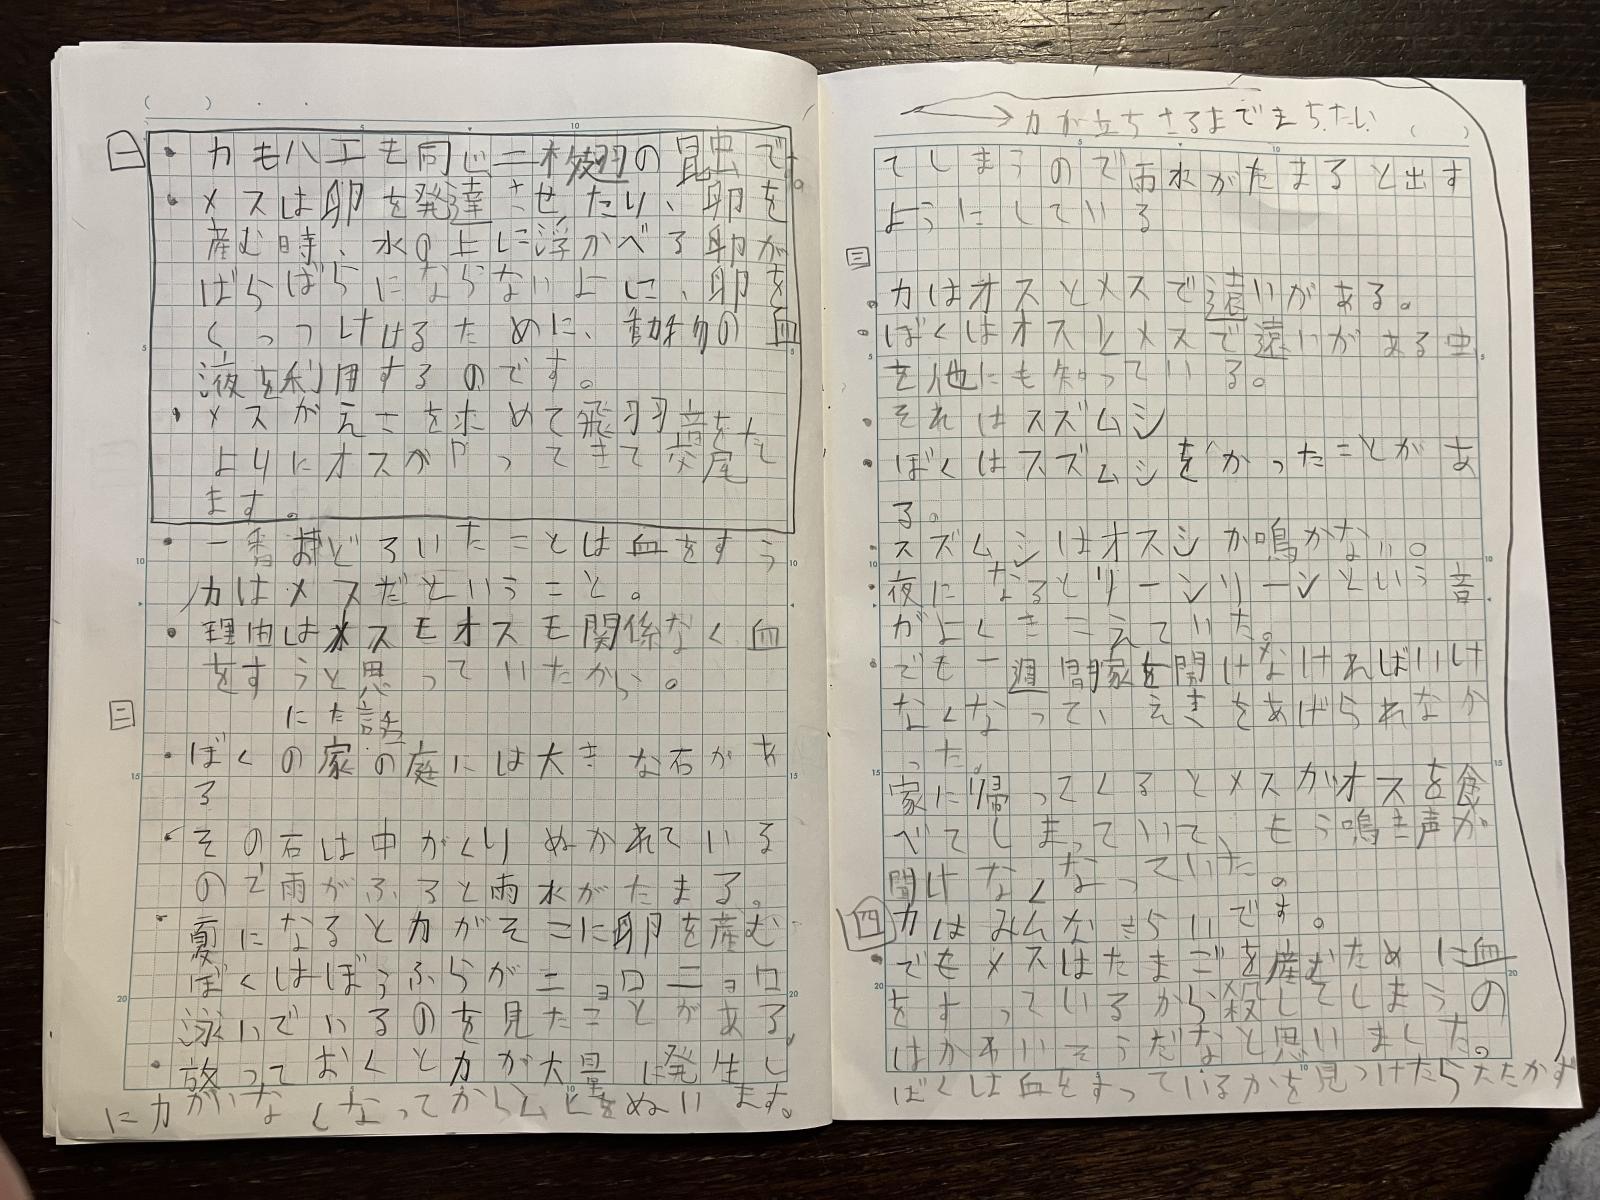 一
・カもハエも同じ二枚翅の昆虫です。
・メスは卵を発達させたり、卵を
産む時、水の上に浮かべる卵が
ばらばらにならないよに、卵を
くっつけけるために、動物の血
液を利用するのです。
・メスがえさを求めて飛羽音をたて
よりにオスがやってきて交尾
ます。
・一番おどろいたことは血をすう
カはメスだということ。
・理由はメスモオスモ関係なく血
をすうと思っていたから。
二
にた話
・ぼくの家の庭には大きな石があ
る
・その石は中がくりぬかれている
ので雨がふると雨水がたまる。
・夏になるとカがそこに卵を産む
ぼくはぼうふらがニョロニョロ
泳いでいるのを見たことがある
・放っておくとカが大量に発生し
てしまうので雨水がたまると出す
ようにしている
三
・カはオスとメスで違いがある。
・ぼくはオスとメスで違いがある虫
を他にも知っている。
・それはスズムシ
・ぼくはスズムシをかったことがあ
る。
・スズムシはオスシか鳴かない。
・夜になるとリーンリーンという音
がよくきこえていた。
・でも一週間家を開けなければいけ
なくなってい、えさをあげられなか
った。
家に帰ってくるとメスがオスを食
べてしまっていて、もう鳴き声が
聞けなくなっていた。
四
カはみんなきらいです。
・でもメスはたまごを産むために血
をすっているから殺してしまうの
はかわいそうだなと思いました。
ぼくは血をすっているカを見つけたらたたかず
カが立ちさるまでまちたい
にカがいなくなってからムヒをぬります。